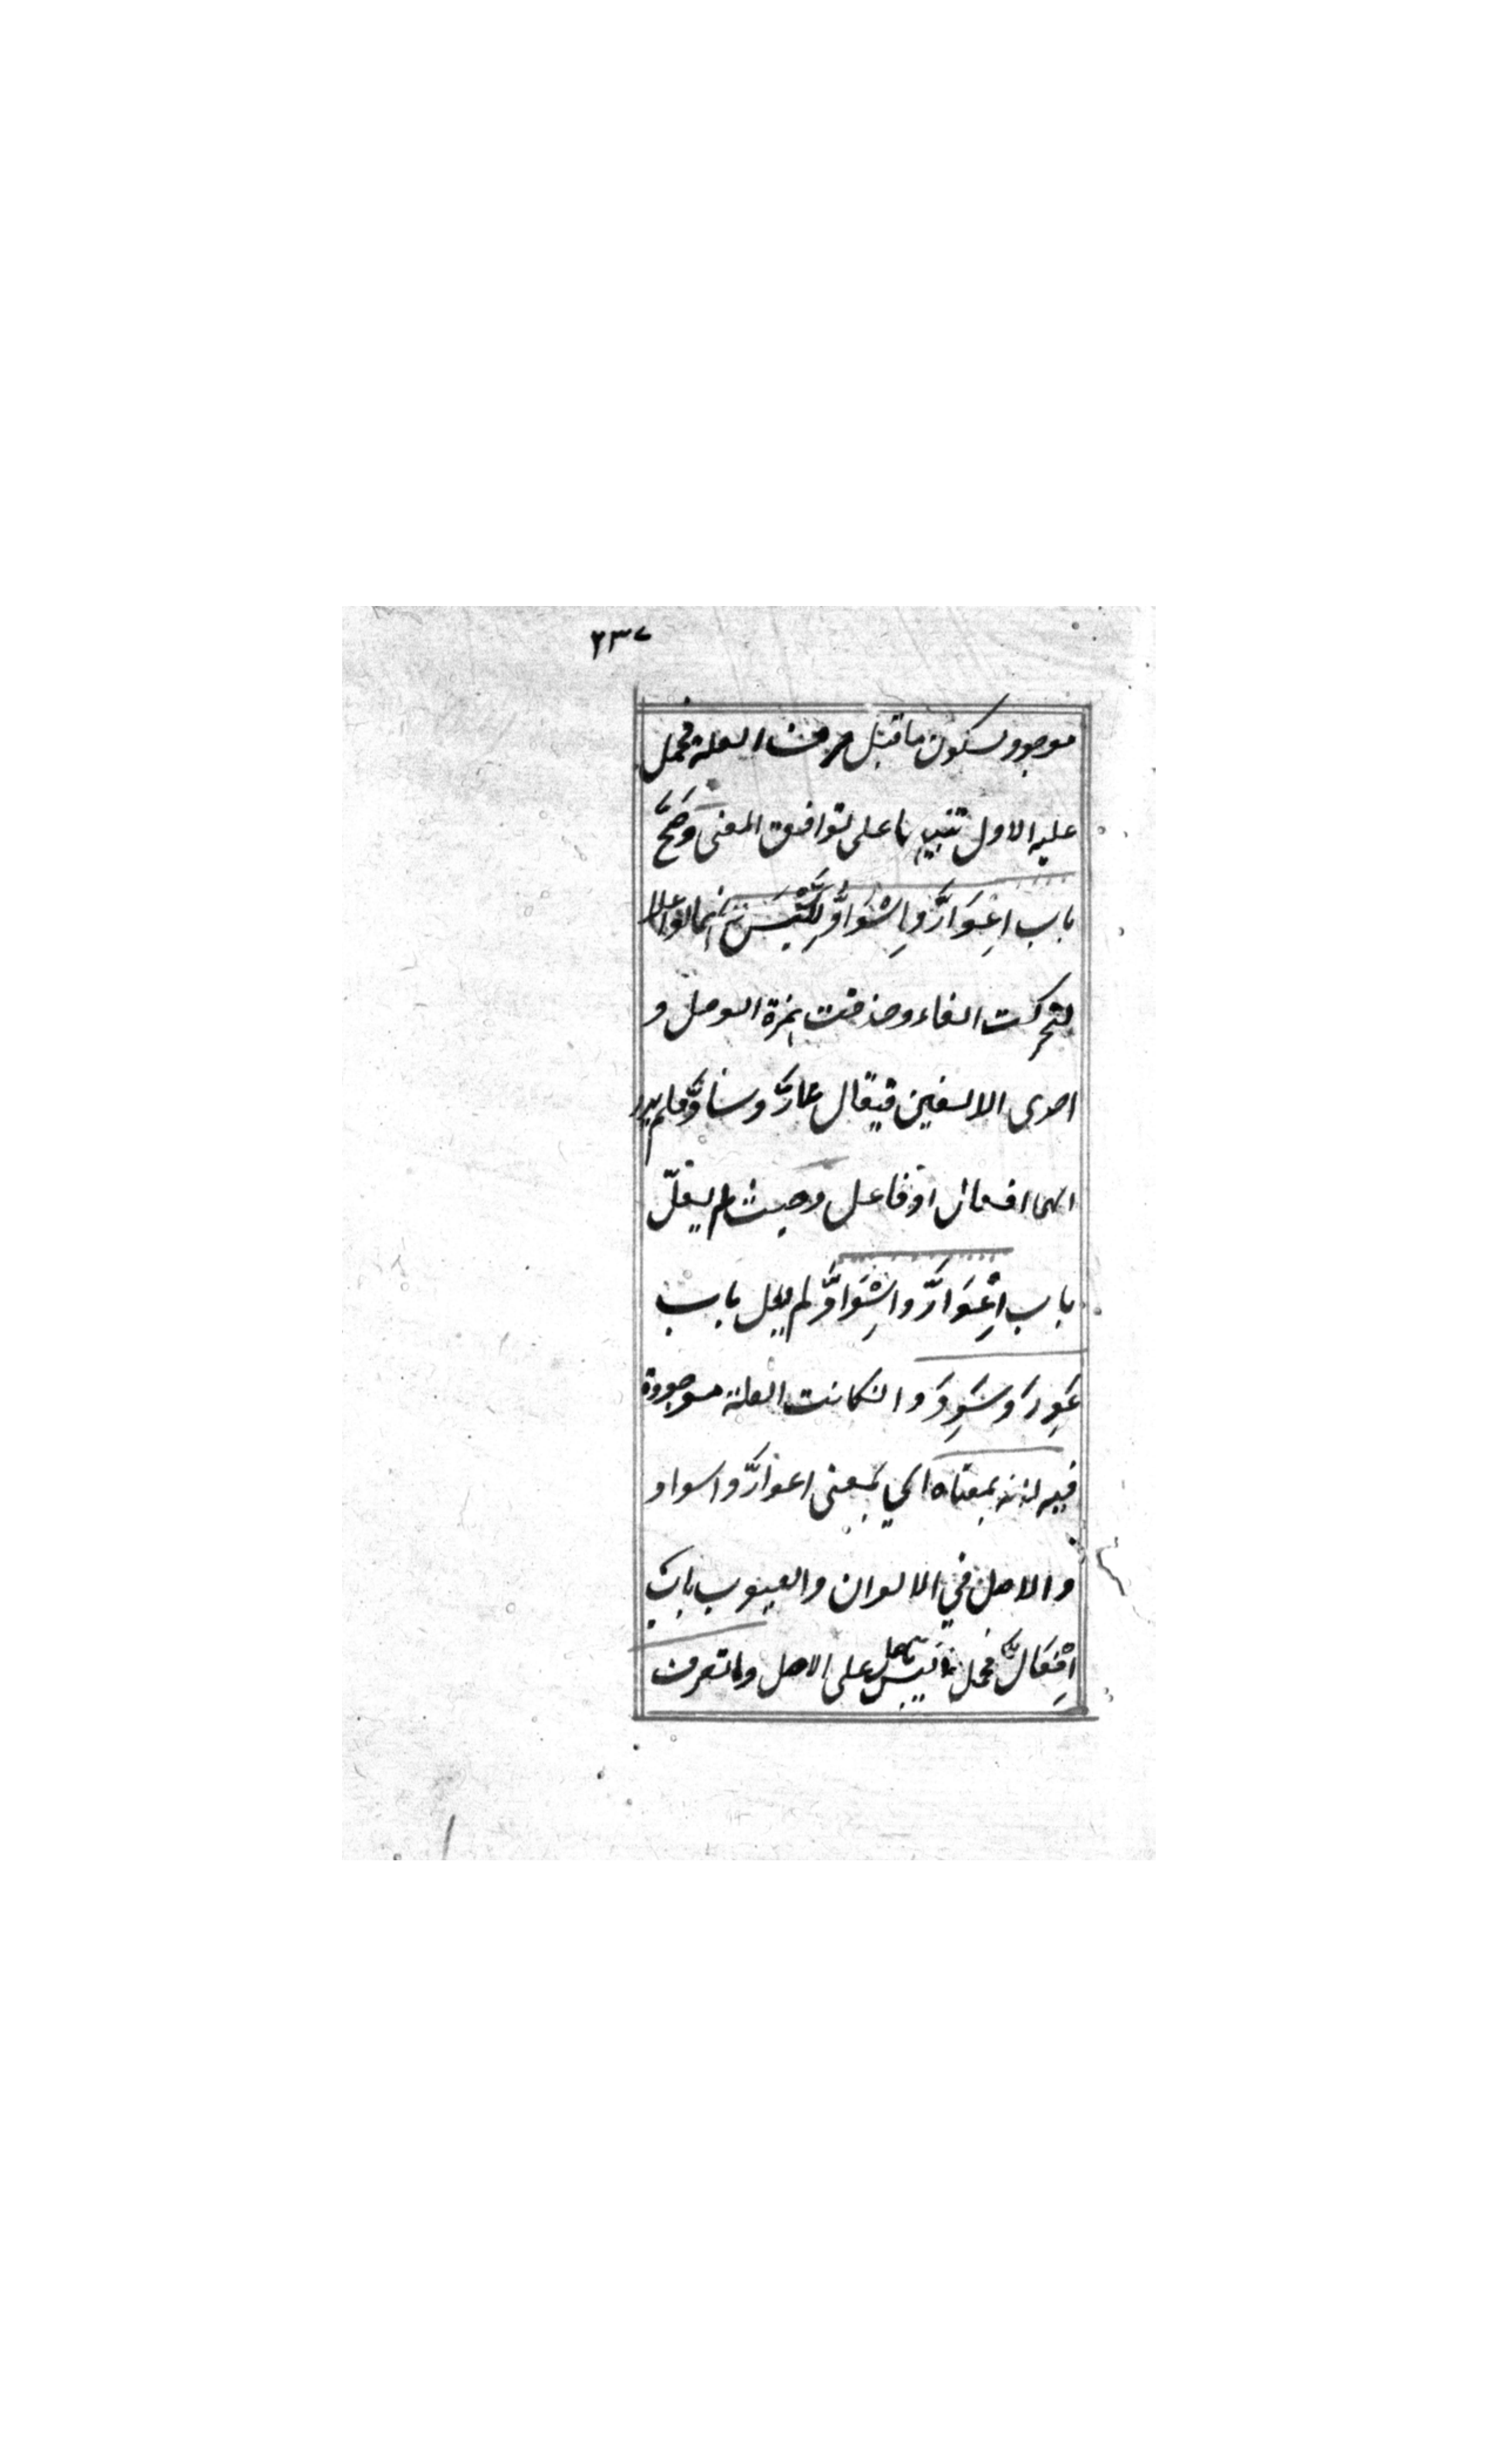 ٢٣٧
موجود لسكون ما قبل حرف العلة فحمل
عليه الاول تنبيها على توافق المعنى وَصَحَّ
باب اِعْوَارَّ واِسْوَادَّ لِلَّبْسِ لانهما لو اعلا
لتحركت الفاء وحذفت همزة الوصل و
احدى الالفين فيقال عارَّ وسادَّ فلم يدر
انهما افعال او فاعل وحيث لم يعلّ
باب اِعْوَارَّ واِسْوَادَّ لم يعل باب
عَوِرَ وسَوِدَ وان كانت العلة موجودة
فيه لانه بمعناه اي بمعنى اعوارَّ واسواد
والاصل في الالوان والعيوب باب
اِفْعَالَّ فحمل على الاصل وما تصرف